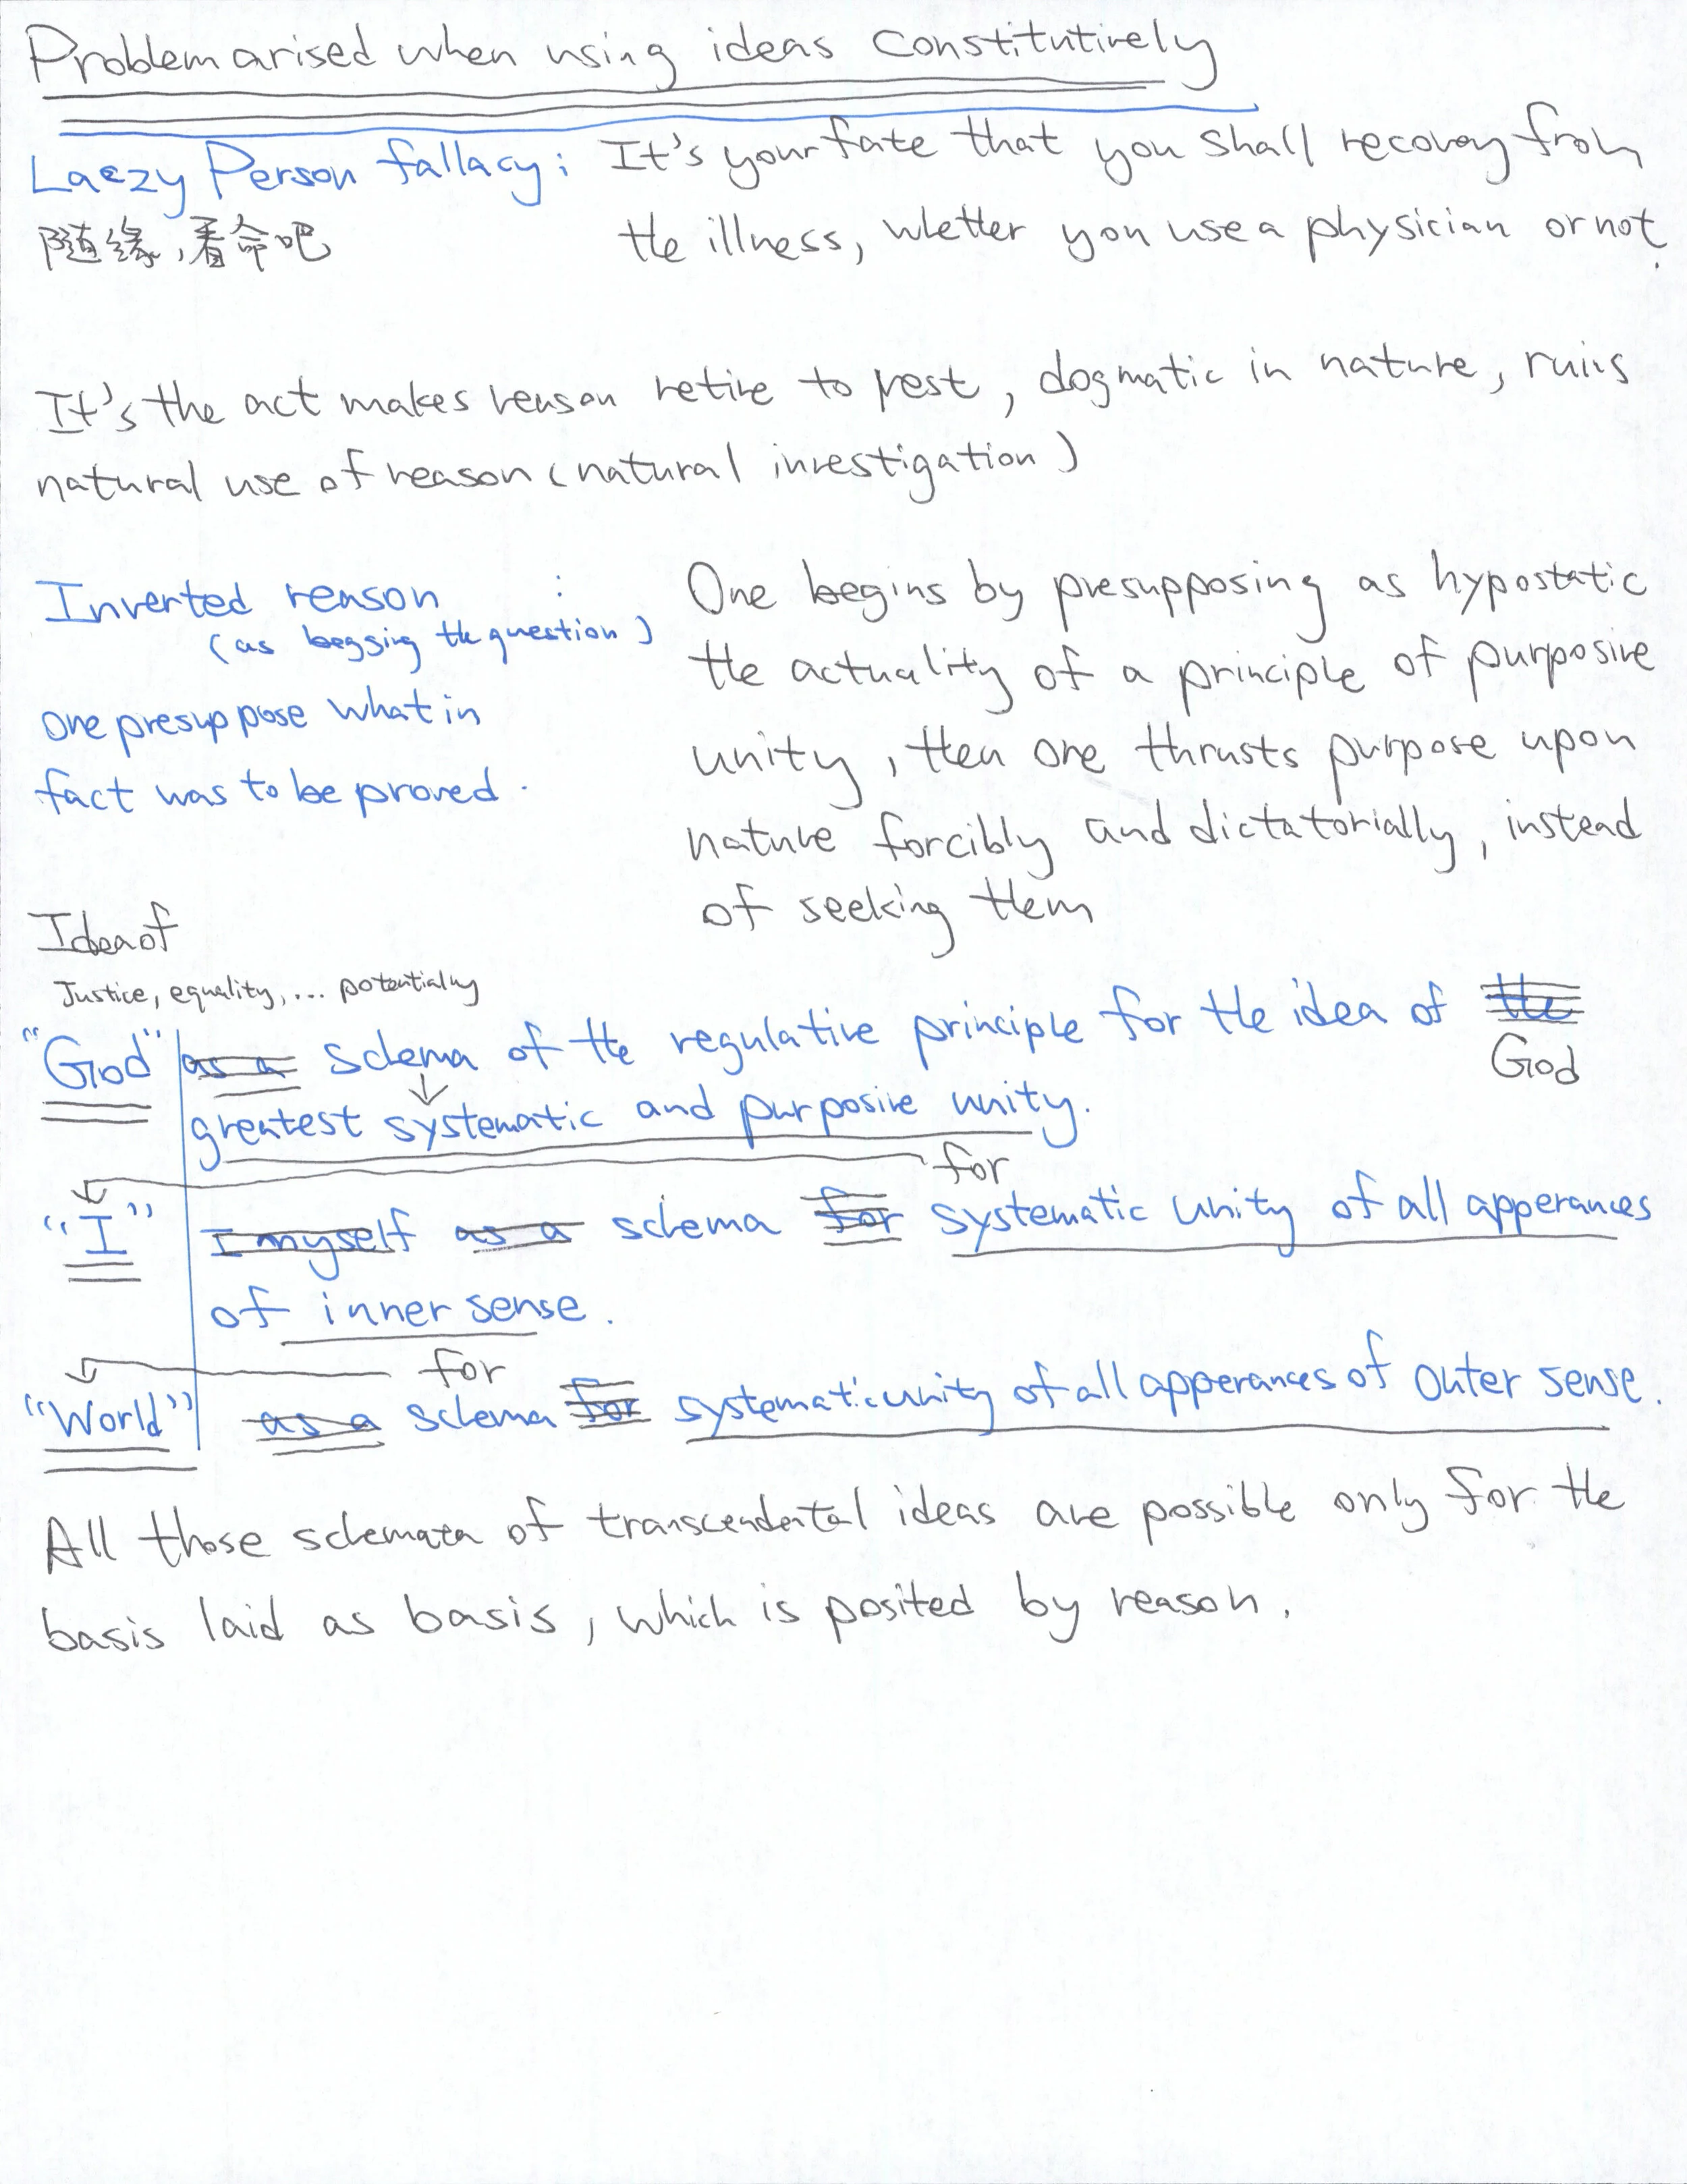 Problem arised when using ideas constitutively
Laezy Person fallacy: It's your fate that you shall recovey from
随缘,看命吧 the illness, whether you use a physician or not.
It's the act makes reason retire to rest, dogmatic in nature, ruins
natural use of reason (natural investigation)
Inverted reason :
(as begging the question)
one presuppose what in
fact was to be proved.
One begins by presupposing as hypostatic
the actuality of a principle of purposive
unity, then one thrusts purpose upon
nature forcibly and dictatorially, instead
of seeking them
Idea of
Justice, equality, ... potentially
"God" as a schema of the regulative principle for the idea of the
God
greatest systematic and purposive unity.
for
"I" I myself as a schema for systematic unity of all apperances
of inner sense.
for
"World" as a schema for systematic unity of all apperances of outer sense.
All those schemata of transcendental ideas are possible only for the
basis laid as basis, which is posited by reason.